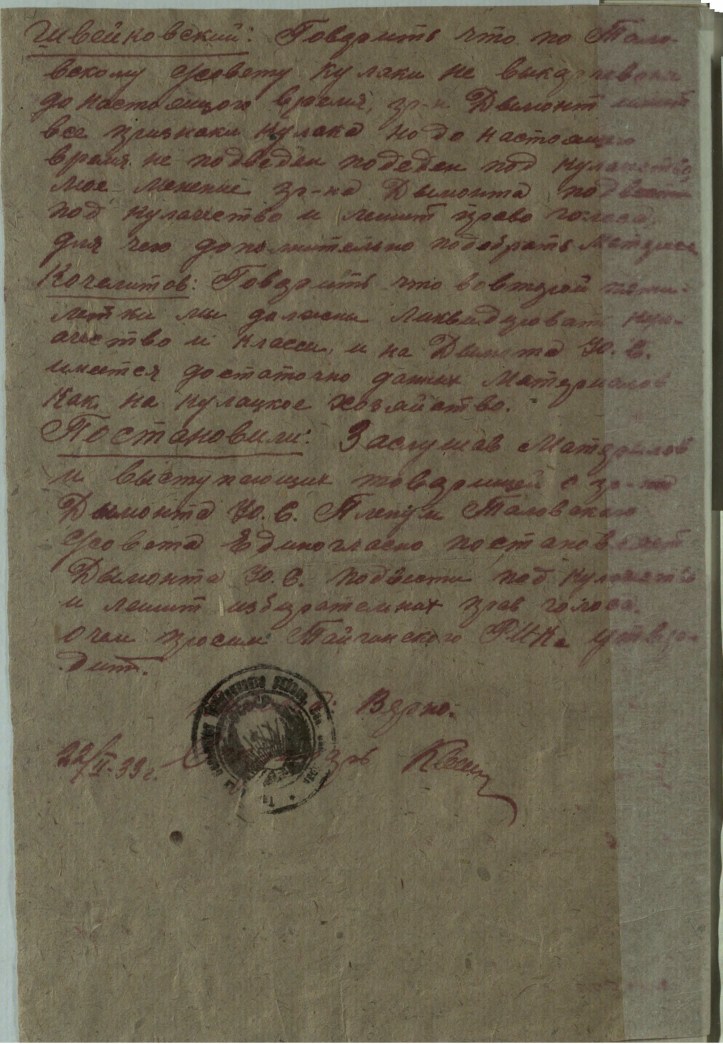 Швейковский: Говорить что по Тало-
вскому с/совету кулаки не выкорчевона
до настоящого время, гр-н Дымонт имеит
все признаки кулака но до настоящего
время не подведен подеден под кулачество
мое мнение гр-на Дымонта подвести
под кулачество и лешит право голоса,
для чего дополнительно подобрать Матерьял
Кочелитов: Говорить что вовторой пяти-
летки мы должны ликвидировать кула-
чество и класси, и на Дымонта Ю. С.
имеется достаточно данных Материалов
Как, на кулацкое хозяйство.
Постановили: Заслушав Матерьялов
и выступающих товарищей о гр-не
Дымонта Ю. С. Пленум Таловского
с/совета Единогласно постановляет
Дымонта Ю. С. подвести под кулачество
и лешит избирательных прав голоса.
очем просим Тайгинского РИКа утвер-
дит.
Верно:
22/II-33 г.